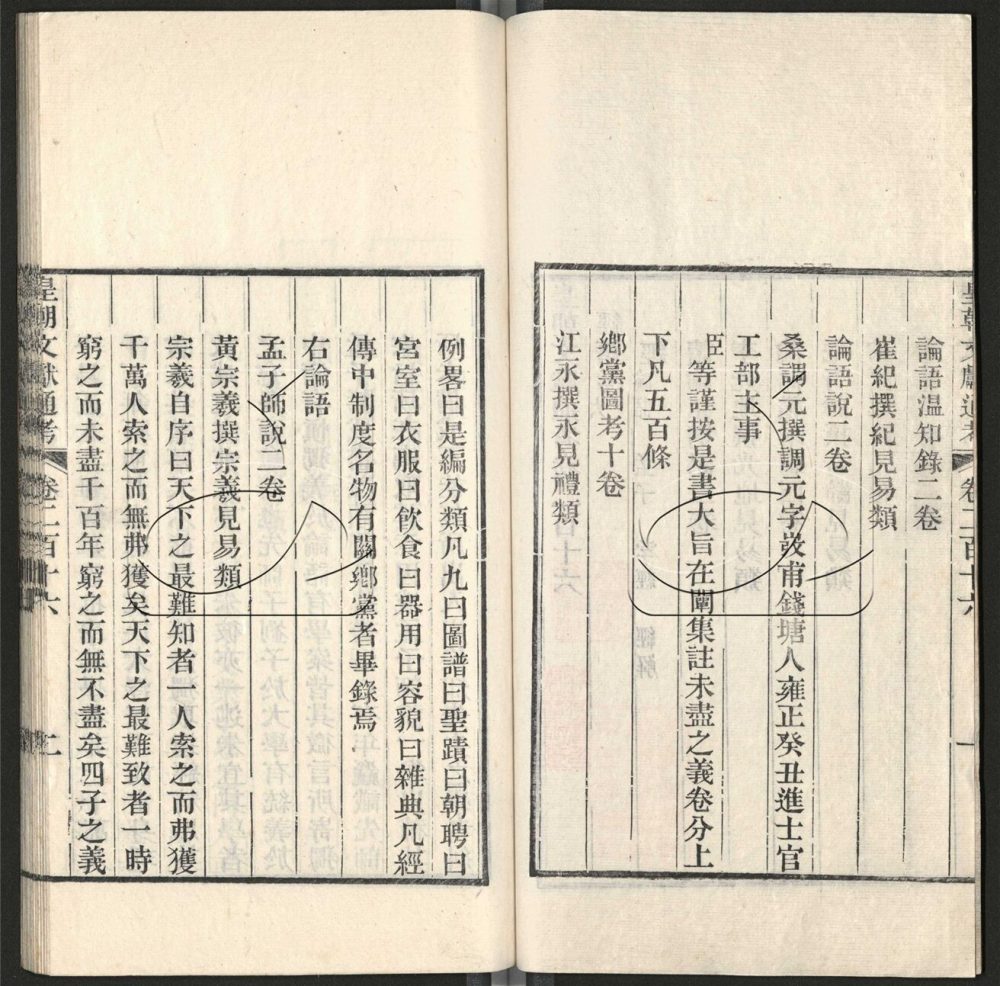 皇朝文獻通考 卷二百十六
論語温知錄二卷
崔紀撰紀見易類
論語說二卷
桑調元撰調元字弢甫錢塘人雍正癸丑進士官
工部主事
臣等謹按是書大旨在闡集註未盡之義卷分上
下凡五百條
鄉黨圖考十卷
江永撰永見禮類
例畧曰是編分類凡九曰圖譜曰聖蹟曰朝聘曰
宮室曰衣服曰飲食曰器用曰容貌曰雜典凡經
傳中制度名物有關鄉黨者畢錄焉
右論語
孟子師說二卷
黃宗羲撰宗羲見易類
宗羲自序曰天下之最難知者一人索之而弗獲
千萬人索之而無弗獲矣天下之最難致者一時
窮之而未盡千百年窮之而無不盡矣四子之義
皇朝文獻通考 卷二百十六